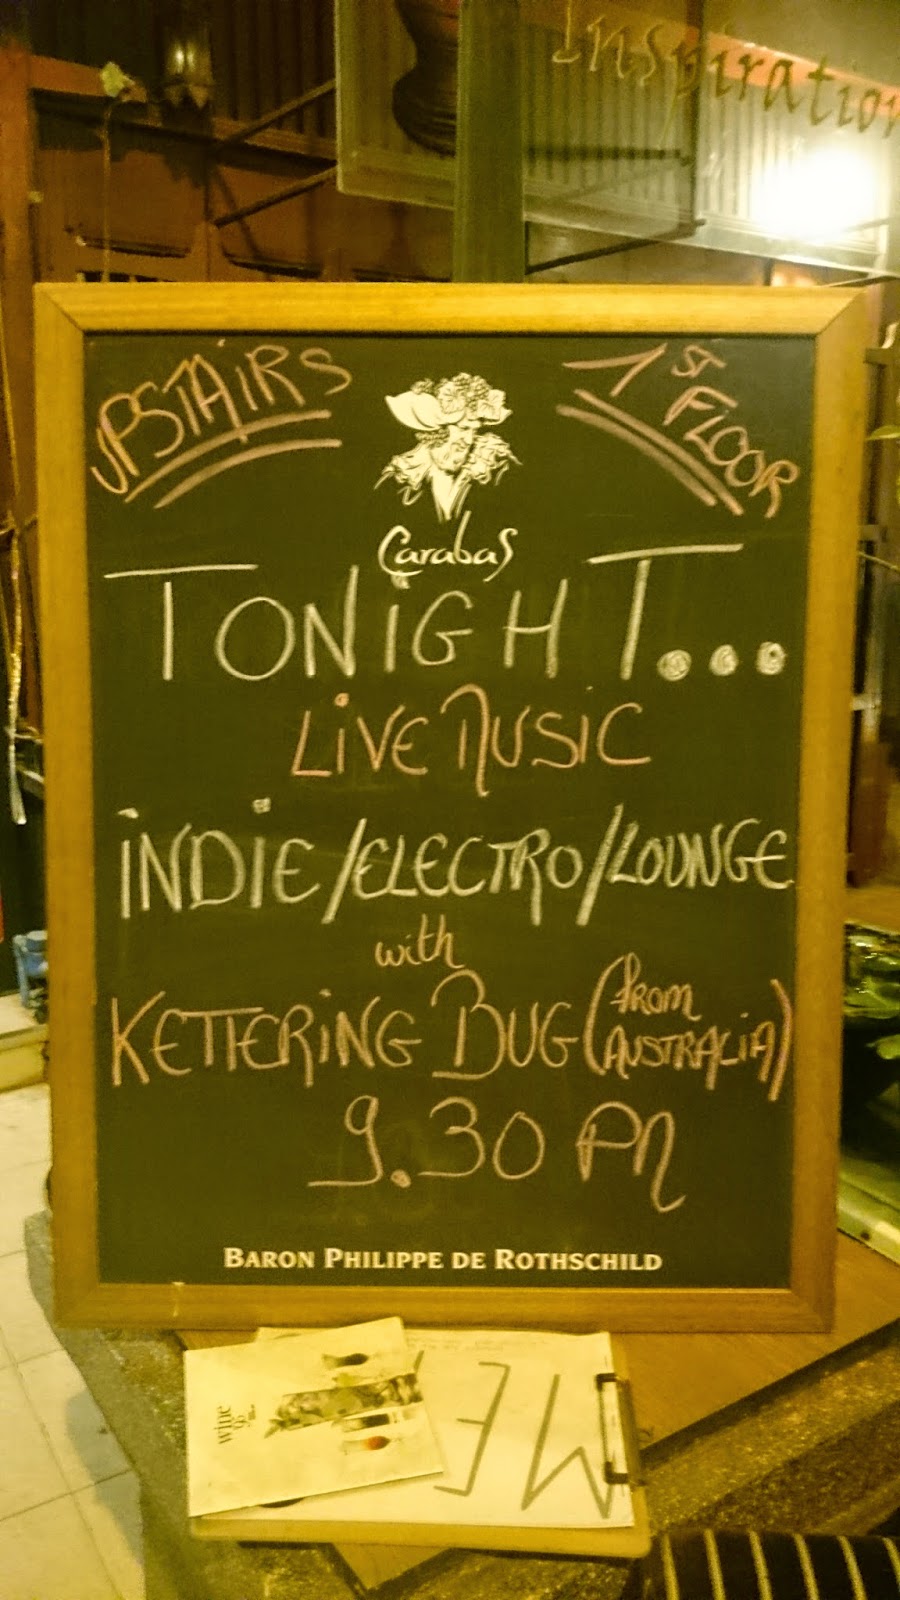 Inspiration
UPSTAIRS
1st FLOOR
Carabas
TONIGHT...
LIVE MUSIC
INDIE/ELECTRO/LOUNGE
with
KETTERING BUG (from AUSTRALIA)
9.30 PM
BARON PHILIPPE DE ROTHSCHILD
wine